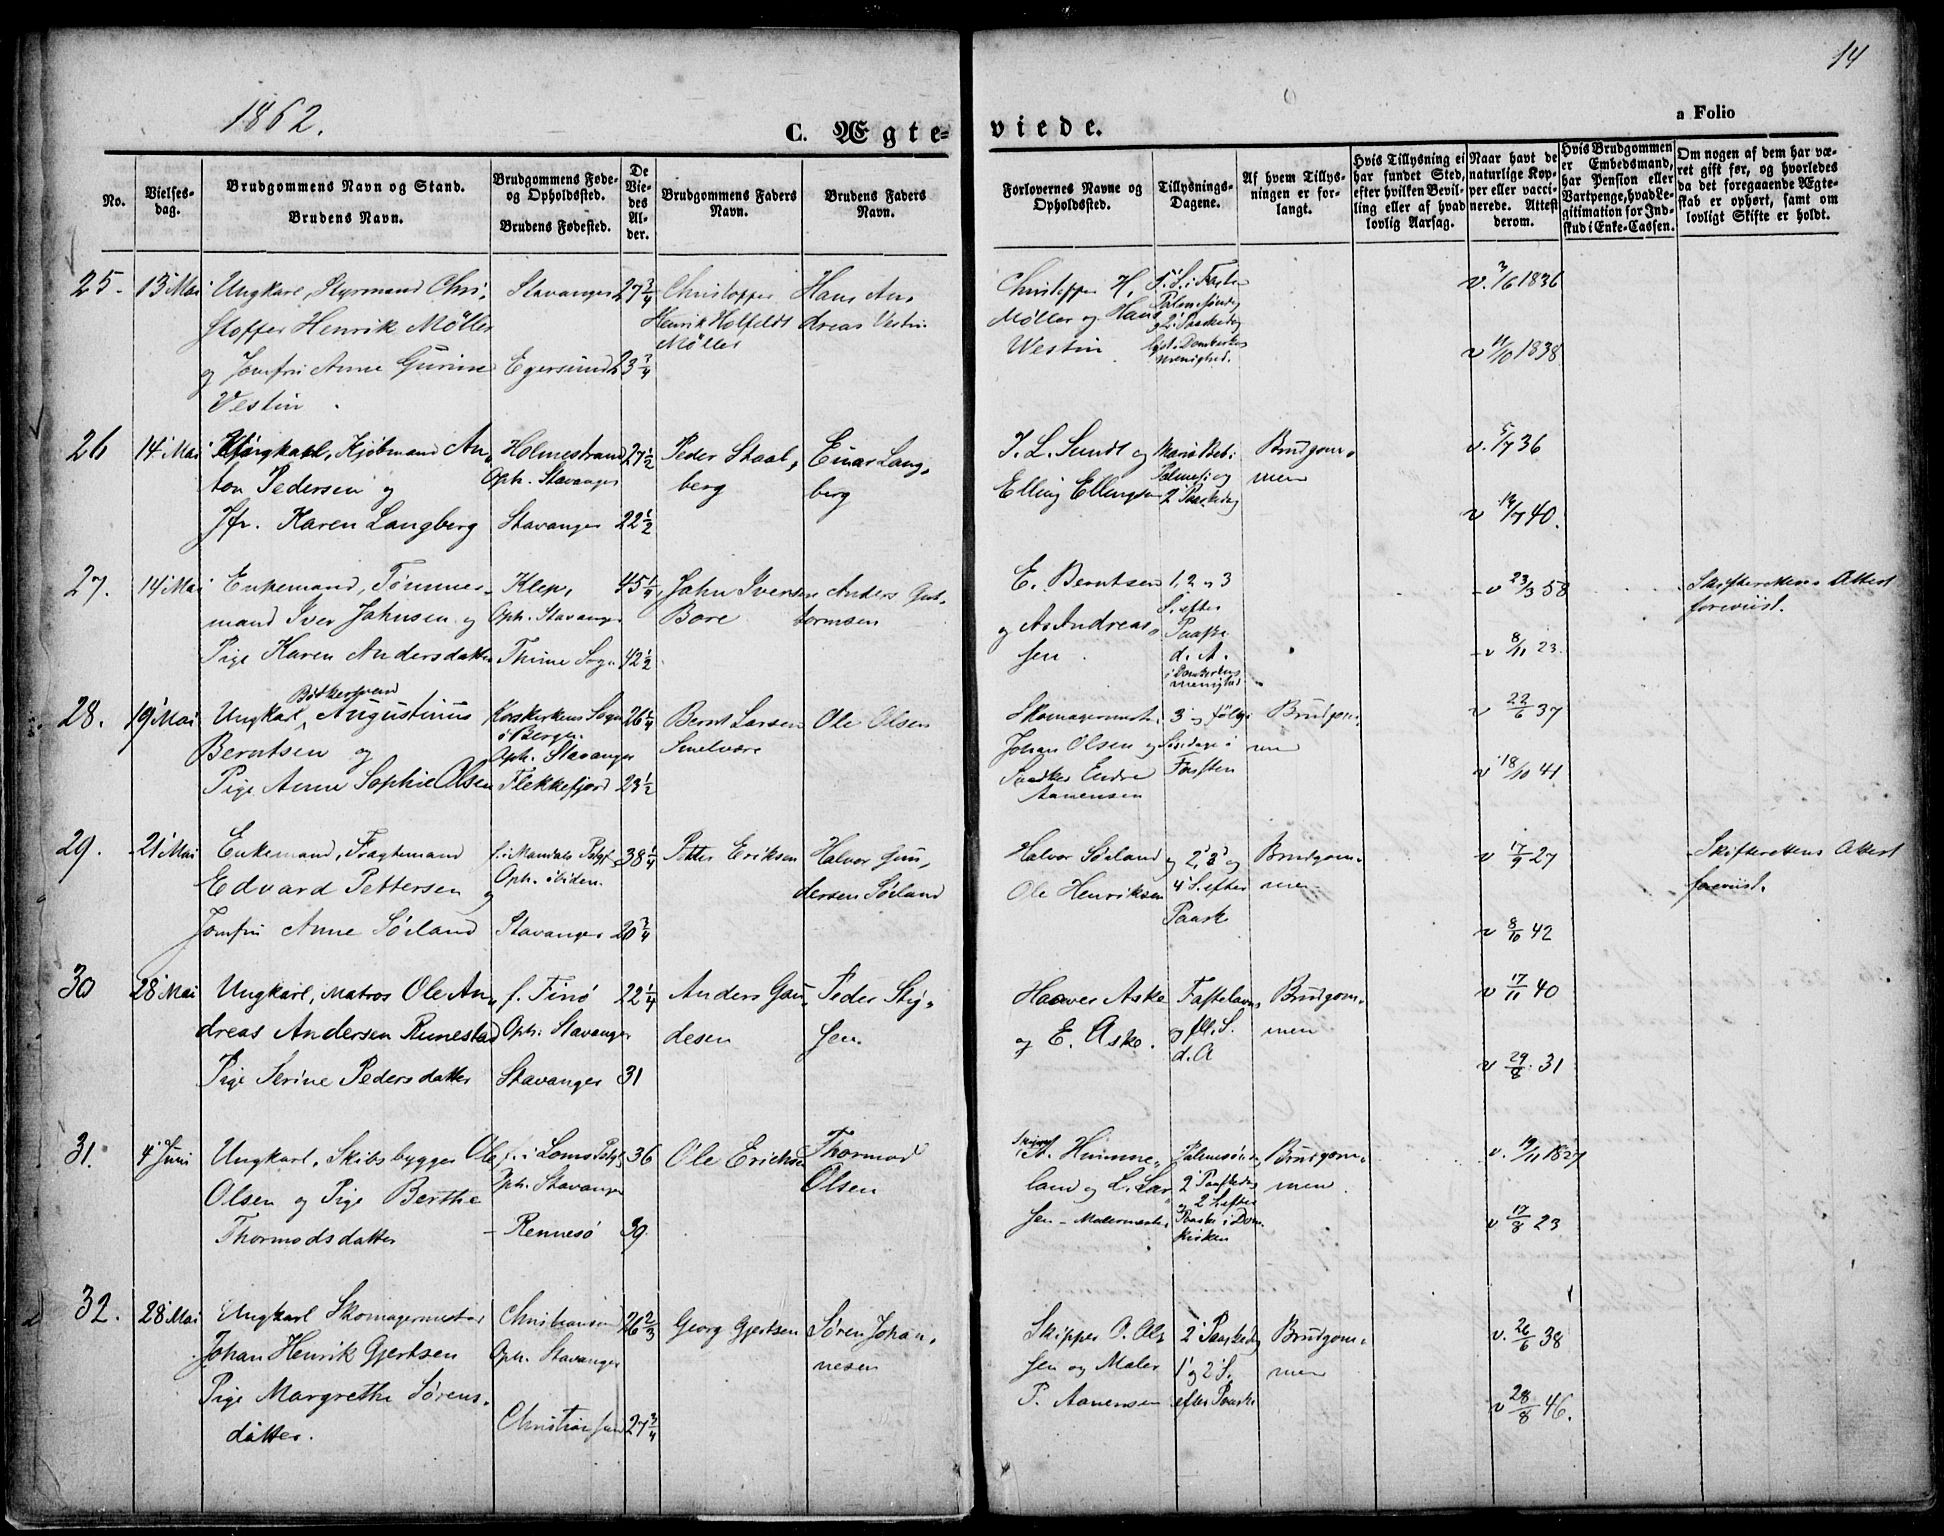 14
1862.
C. Ægte-
viede.
a Folio
No.
Vielses-
dag.
Brudgommens Navn og Stand.
Brudens Navn.
Brudgommens Føde-
og Opholdssted.
Brudens Fødested.
De
Vie-
des
Al-
der.
Brudgommens Faders
Navn.
Brudens Faders
Navn.
Forlovernes Navne og
Opholdssted.
Tillysnings-
Dagene.
Af hvem Tillys-
ningen er for-
langt.
Hvis Tillysning ei
har fundet Sted,
efter hvilken Bevil-
ling eller af hvad
lovlig Aarsag.
Naar havt de
naturlige Kop-
per eller vacci-
nerede. Attest
derom.
Hvis Brudgommen
er Embedsmand,
har Pension eller
Vartpenge, hvad Le-
gitimation for Ind-
skud i Enke-Cassen.
Om nogen af dem har væ-
ret gift før, og hvorledes
da det foregaaende Ægte-
skab er ophørt, samt om
lovligt Skifte er holdt.
25. 13 Mai
Ungkarl, Styrmand Chri-
stoffer Henrik Møller
og Jomfru Anne Gurine
Vestin.
Stavanger
Egersund
27 3/4
23 3/4
Christoffer
Henrik Holfeldt
Møller
Hans An-
dreas Vestin
Christoffer H.
Møller og Hans
Westin
Palmesøndag
og 2 Paaskedag
menighed.
v. 3/6 1836
v 11/10 1838
26 14 Mai
Ungkarl, Kjøbmand An-
ton Pedersen og
Jfr. Karen Langberg
Holmestrand
Oph. Stavanger
Stavanger
27 1/2
22 1/2
Peder Staal-
berg
Einar Lang-
berg
J. L. Sundt og
Elling Ellingsen
Maria Beb.
Palmes. og
2 Paaskedag
Brudgom-
men
v. 5/7 36
v 14/7 40.
27. 14 Mai
Enkemand, Tømmer-
mand Iver Jahnsen og
Pige Karen Andersdatter
Klep,
Oph. Stavanger
Thime Sogn
45 1/4
42 1/2
John Iversen
Bore
Anders Gut-
tormsen
E. Berntsen
og As Andreas-
sen.
1, 2 og 3
S. efter
Paaske
d. A.
i Domkirkens
menighed
v 23/3 58
v 8/11 23.
Skifterettens Attest
foreviist.
28. 19 Mai
Bødkersvend
Ungkarl, Augustinus
Berntsen og
Pige Anne Sophie Olsen
Korskirkens Sogn
i Bergen
Oph. Stavanger
Flekkefjord
26 1/4
23 1/2
Bernt Larsen
Smelvære
Ole Olsen
Skomagermest.
Johan Olsen og
Snedker Endre
Aanensen
3 og følg.
Søndage i
Fasten
Brudgom-
men
v 22/6 37
v 18/10 41
29. 21 Mai
Enkemand, Fragtemand
Edvard Pettersen og
Jomfru Anne Søiland
f. i Mandals Pstgj.
Oph. ibiden.
Stavanger
38 1/4
20 3/4
Petter Eriksen
Halvor Gun-
dersen Søiland
Halvor Søiland og
Ole Henriksen
2, 3 og
4 S. efter
Paask
Brudgom-
men
v 17/9 27
v 8/10 42
Skifterettens Attest
foreviist.
30 28 Mai
Ungkarl, Matros Ole An-
dreas Andersen Runestad
Pige Serine Pedersdatter
f. Finø
Oph. Stavanger
Stavanger
22 1/4
31
Anders Gau-
desen
Peder Stig-
sen.
Haaver Aske
og E. Aske.
Fastelavns
og fl. S.
d. A
Brudgom-
men
v 17/11 40
v 29/8 31
31. 4 Juni
Ungkarl, Skibsbygger Ole
Olsen og Pige Berthe
Thormodsdatter
f. i Loms Pstgj.
Oph. Stavanger
Rennesø
36
39.
Ole Erichsen
Thormod
Olsen
A. Humme-
land og L. Lar-
sen - Malermester
Palmesøndag
2 Paaskedag
og 2 S efter
Paaske i Dom-
kirken
Brudgom-
men.
v. 19/11 1827
v 17/8 23
32. 28 Mai
Ungkarl Skomagermester
Johan Henrik Gjertsen
Pige Margrethe Sørens-
datter.
Christiansund
Oph. Stavanger
Christiansund
26 2/3
27 3/4
Georg Gjertsen
Søren Johan-
nesen
Skipper O. Ol-
sen og Maler
P. Aanensen
2 Paaskedag
1 og 2 S.
efter Paaske
Brudgom-
men
v. 26/6 38
v 28/8 46.